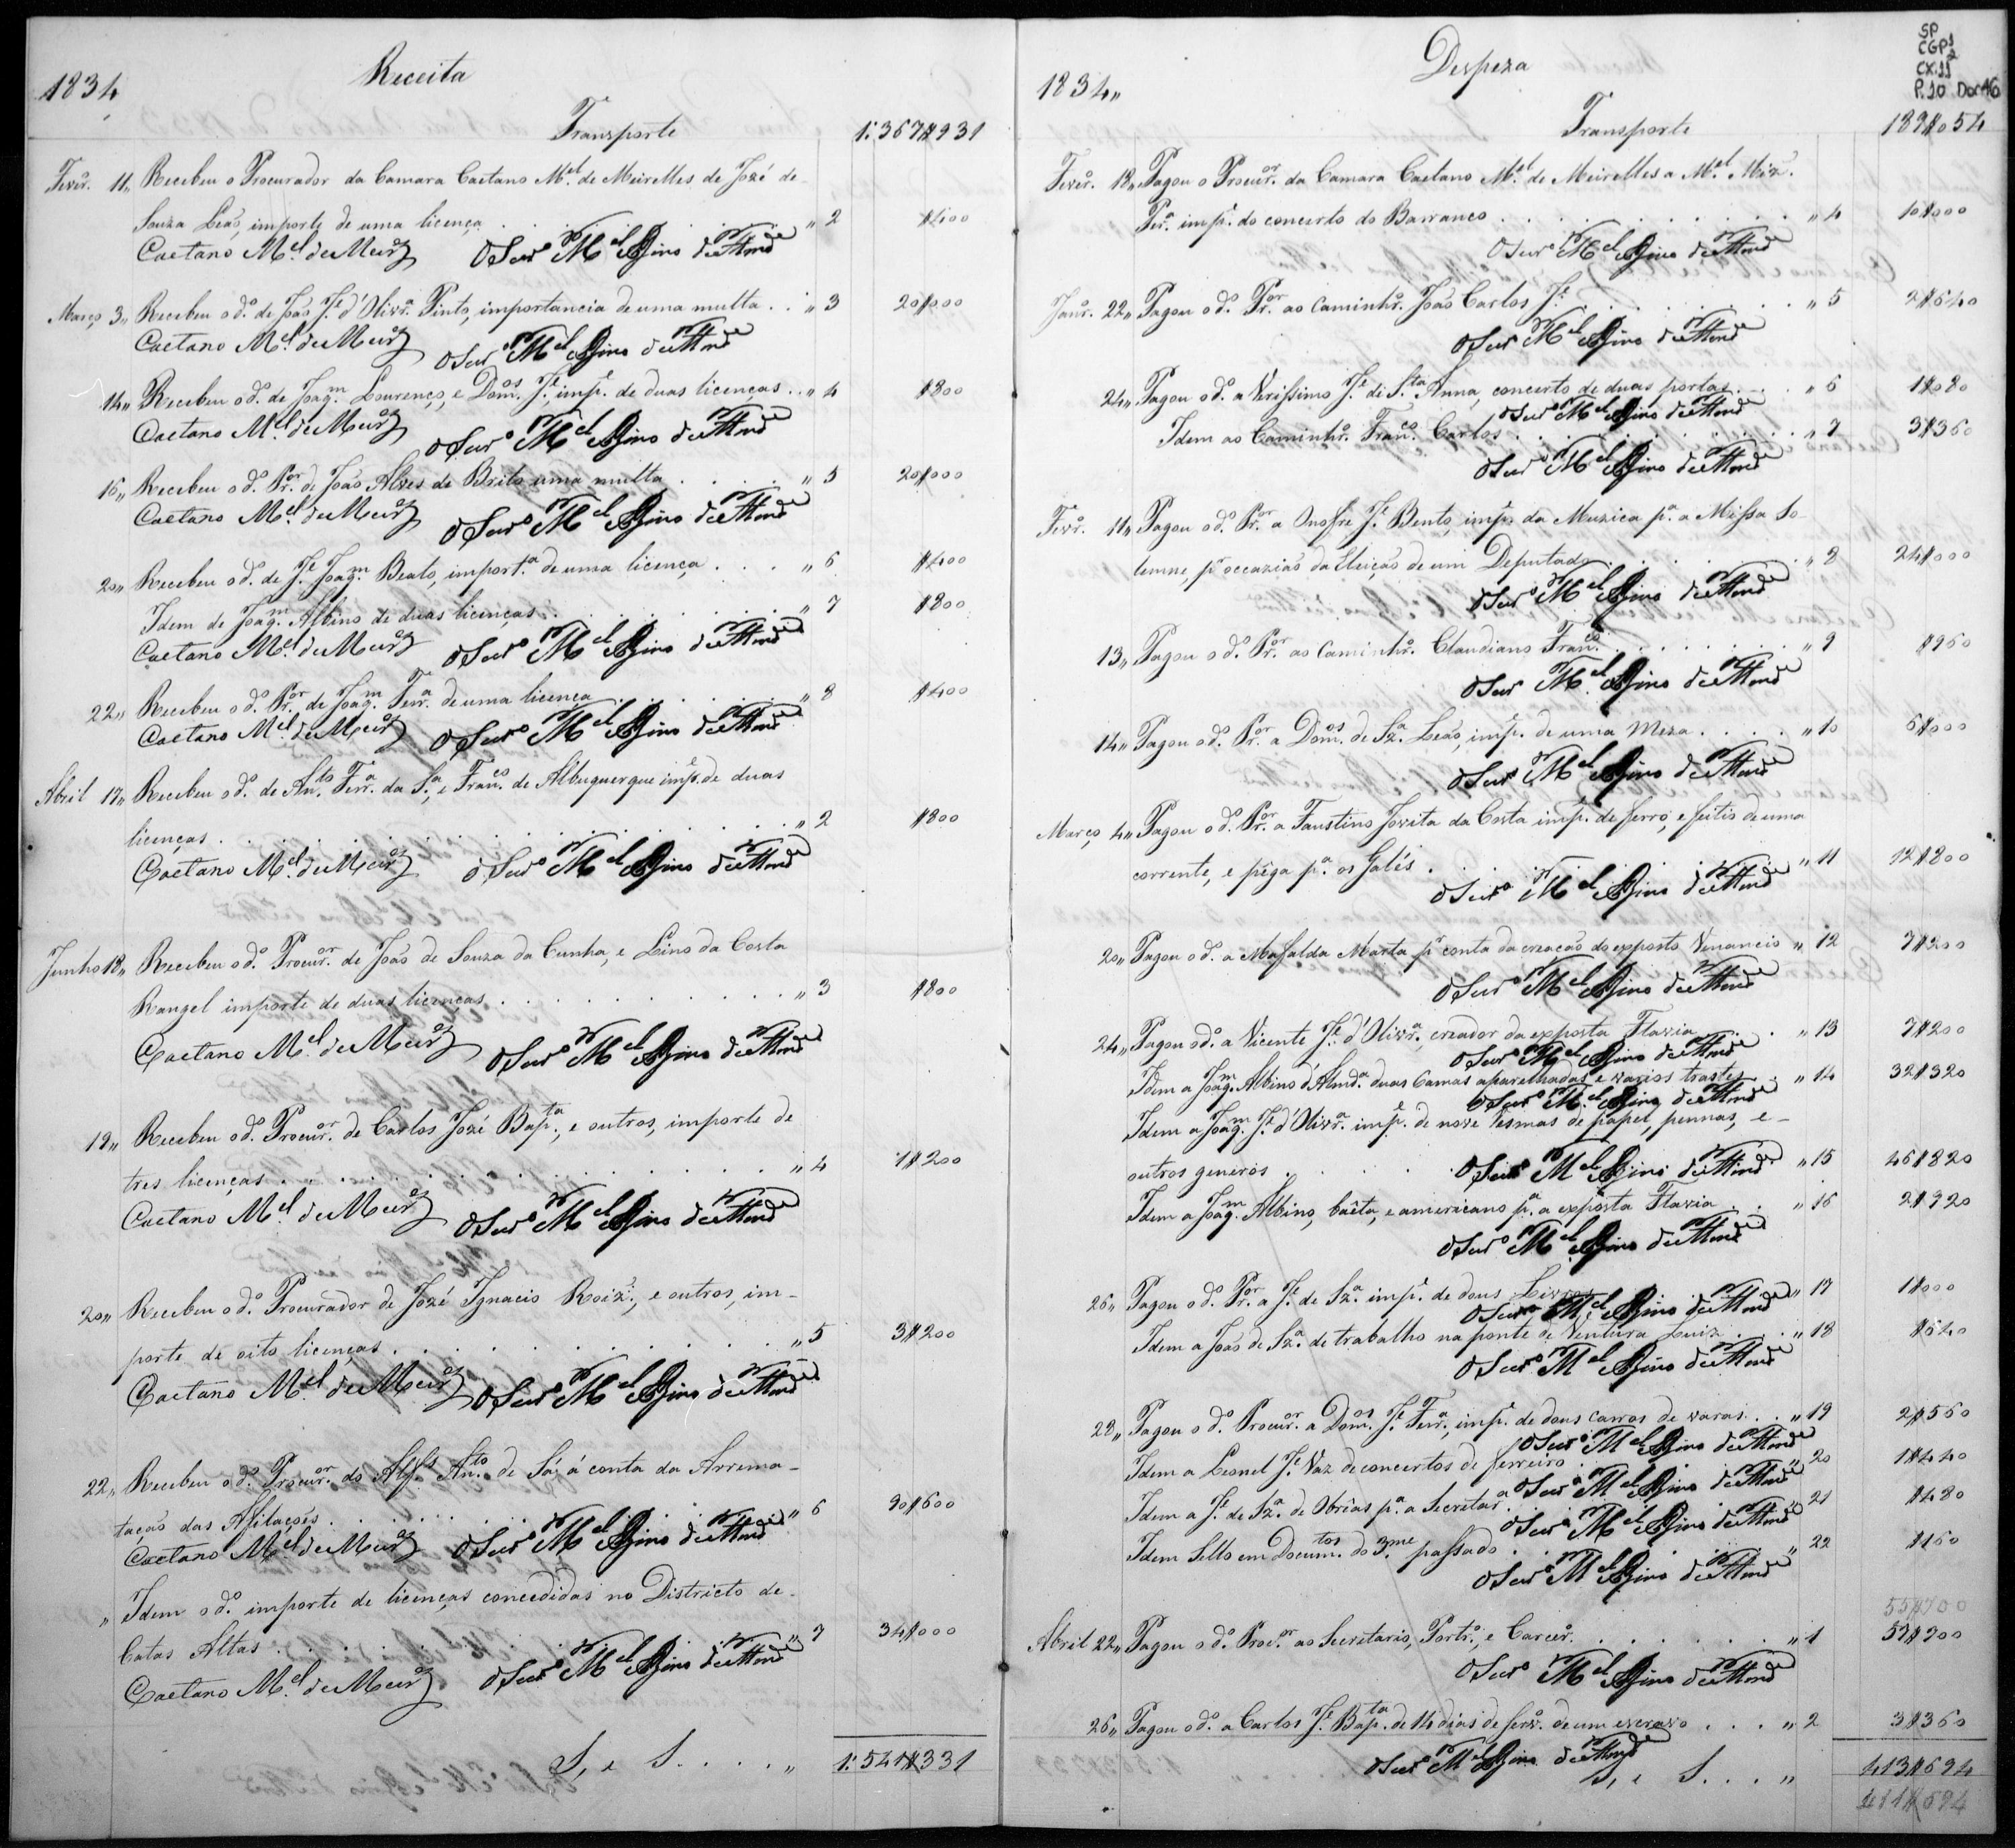 1834
Receita
Transporte 1:367$931
Fever. 11,, Recebeu o Procurador da Camara Caetano Mel. de Meirelles de José de
Souza Leão, importe de uma licença . . . ,, 2 $400
Caetano Mel. de Meirez O Secro Mel
Março 3,, Recebeu o do. de João Je. d'Olivra. Pinto, importancia de uma multa . . ,, 3 20$000
Caetano Mel. de Meirez O Secro Mel
14,, Recebeu o do. de Joaqm. Lourenço, e Domos. Je. impe. de duas licenças . . ,, 4 $800
Caetano Mel. de Meirez O Secro Mel
16,, Recebeu o do. Pror. de João Alves de Brito uma multa . . . . ,, 5 20$000
Caetano Mel. de Meirez O Secro Mel
20,, Recebeu o do. de Je. Joaqm. Beato, importa. de uma licença . . . ,, 6 $400
Idem de Joaqm. Albino de duas licenças . . . ,, 7 $800
Caetano Mel. de Meirez O Secro Mel
22,, Recebeu o do. Pror. de Joaqm. Ferra. de uma licença . . . ,, 8 $400
Caetano Mel. de Meirez O Secro Mel
Abril 17,, Recebeu o do. de Anto. Ferra. da Sa., e Franco. de Albuquerque impe. de duas
licenças . . . ,, 2 $800
Caetano Mel. de Meirez O Secro Mel
Junho 18,, Recebeu o do. Procuror. de João de Souza da Cunha, e Lino da Costa
Rangel importe de duas licenças . . . ,, 3 $800
Caetano Mel. de Meirez O Secro Mel
19,, Recebeu o do. Procuror. de Carlos José Bapta., e outros, importe de
tres licenças . . . ,, 4 1$200
Caetano Mel. de Meirez O Secro Mel
20,, Recebeu o do. Procurador de José Ignacio Roiz., e outros, im-
porte de oito licenças . . . ,, 5 3$200
Caetano Mel. de Meirez O Secro Mel
22,, Recebeu o do. Procuror. do Alfs. Anto. de Sá, á conta da Arrema-
tação das Afilações . . . ,, 6 90$600
Caetano Mel. de Meirez O Secro Mel
,, Idem o do. importe de licenças concedidas no Districto de
Catas Altas . . . ,, 7 34$000
Caetano Mel. de Meirez O Secro Mel
S, e S. . . . ,, 1:541$331
SP
CGP1
CX.11
P.10 Doc46
1834,,
Despeza
Transporte 189$054
Fever. 18,, Pagou o Procuror. da Camara Caetano Mel. de Meirelles a Mel. Miz.
Fera. impe. do concerto do Barranco . . . ,, 4 10$000
O Secro Mel
Janr. 22,, Pagou o do. Pror. ao Caminhro. João Carlos Je. . . . ,, 5 2$640
O Secro Mel
24,, Pagou o do. a Verissimo Je. de Sta. Anna, concerto de duas portas . . ,, 6 1$080
O Secro Mel
Idem ao Caminhro. Franco. Carlos . . . ,, 7 3$360
O Secro Mel
Fevr. 11,, Pagou o do. Pror. a Onofre Je. Bento, impe. da Muzica pa. a Missa So-
lemne, pr. occazião da Eleição de um Deputado . . . ,, 8 24$000
O Secro Mel
13,, Pagou o do. Pror. ao Caminhro. Claudiano Franco. . . . ,, 9 $960
O Secro Mel
14,, Pagou o do. Pror. a Domos. de Sza. Leão, impe. de uma Meza . . . ,, 10 6$000
O Secro Mel
Março 4,, Pagou o do. Pror. a Faustino Jovita da Costa impe. de ferro, e feitio de uma
corrente, e pêga pa. os Galés . . . ,, 11 12$800
O Secro Mel
20,, Pagou o do. a Mafalda Marta pr. conta da creação do exposto Venancio ,, 12 7$200
O Secro Mel
24,, Pagou o do. a Vicente Je. d'Olivra., creador da exposta Flavia . . ,, 13 7$200
O Secro Mel
Idem a Joaqm. Albino d'Almda. duas Camas aparelhadas, e varios trastes . ,, 14 32$320
O Secro Mel
Idem a Joaqm. Je. d'Olivra. impe. de nove resmas de papel, pennas, e
outros generos . . . O Secro Mel ,, 15 46$820
Idem a Joaqm. Albino, baêta, e americano pa. a exposta Flavia . . ,, 16 2$920
O Secro Mel
26,, Pagou o do. Pror. a Je. de Sza. impe. de dous Livros ,, 17 1$000
O Secro Mel
Idem a João de Sza. de trabalho na ponte de Ventura Luiz . . ,, 18 $640
O Secro Mel
28,, Pagou o do. Procuror. a Domos. Je. Ferra., impe. de dous carros de varas . . ,, 19 2$560
O Secro Mel
Idem a Leonel Je. Vaz de concertos de ferreiro . ,, 20 1$440
O Secro Mel
Idem a Je. de Sza. de Obrêas pa. a Secretara. ,, 21 $480
O Secro Mel
Idem Sello em Documtos. do 3me. passado . . . ,, 22 $160
O Secro Mel
55$700
Abril 22,, Pagou o do. Procor. ao Secretario, Portro., e Carcero. . . . ,, 1 57$700
O Secro Mel
26,, Pagou o do. a Carlos Je. Bapta. de 14 dias de serv. de um escravo . . . ,, 2 3$360
O Secro Mel
S, e S. . . ,, 413$694
411$694